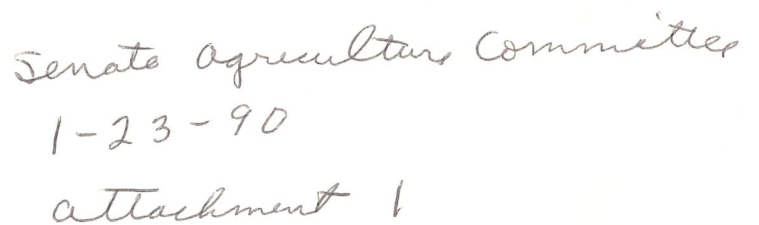 Senate Agriculture Committee
1-23-90
attachment 1